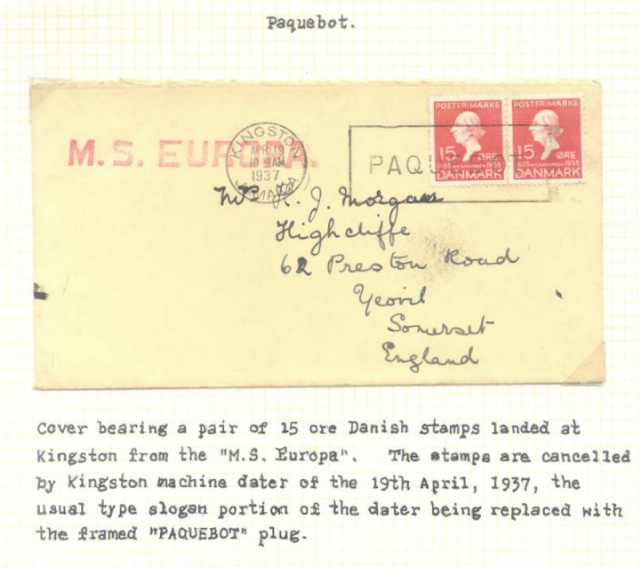 Paquebot.
POSTFRIMÆRKE POSTFRIMÆRKE
M.S. EUROPA.
KINGSTON
APR 19
AM
1937
JAMAICA
PAQUEBOT
15 ØRE 15 ØRE
1835 1935 1935
DANMARK DANMARK
Mr. H. J. Morgan
Highcliffe
62 Preston Road
Yeovil
Somerset
England
Cover bearing a pair of 15 ore Danish stamps landed at
Kingston from the "M.S. Europa". The stamps are cancelled
by Kingston machine dater of the 19th April, 1937, the
usual type slogan portion of the dater being replaced with
the framed "PAQUEBOT" plug.